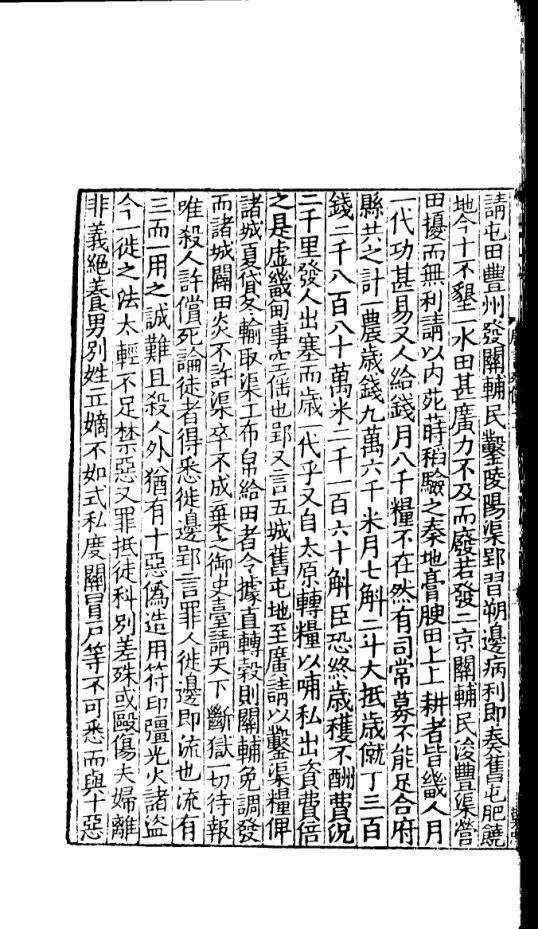 請屯田豐州發關輔民鑿陵陽渠郢習朔邊病利即奏舊屯肥饒
地今十不墾一水田甚廣力不及而廢若發二京關輔民浚豐渠營
田擾而無利請以内苑蒔稻驗之秦地膏腴田上上耕者皆畿人月
一代功甚易又人給錢月八千糧不在然有司常募不能足合府
縣共之計一農歲錢九萬六千米月七斛二斗大抵歲僦丁三百
錢二千八百八十萬米二千一百六十斛臣恐終歲穫不酬費況
二千里發人出塞而歲一代乎又自太原轉糧以哺私出資費倍
之是虛畿甸事空傜也郢又言五城舊屯地至廣請以鑿渠糧俾
諸城夏貸冬輸取渠工布帛給田者令據直轉穀則關輔免調發
而諸城闢田炎不許渠卒不成棄之御史臺請天下斷獄一切待報
唯殺人許償死論徒者得悉徙邊郢言罪人徙邊即流也流有
三而一用之誠難且殺人外猶有十惡偽造用符印彊光火諸盜
今一徙之法太輕不足禁惡又罪抵徒科別差殊或毆傷夫婦離
非義絕養男別姓立嫡不如式私度關冒戶等不可悉而與十惡